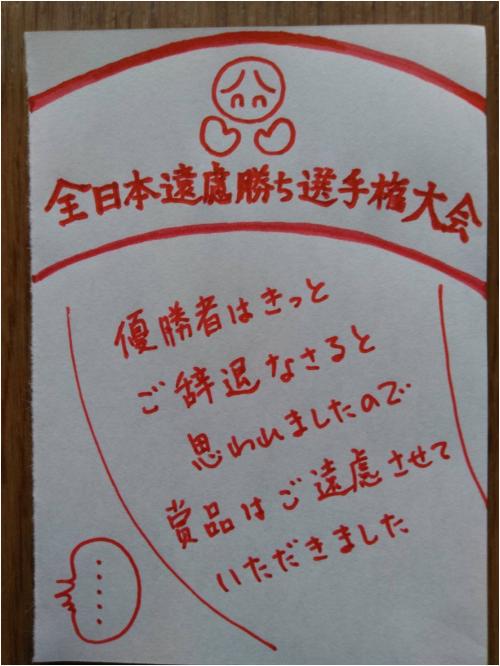 全日本遠慮勝ち選手権大会
優勝者はきっと
ご辞退なさると
思われましたので
賞品はご遠慮させて
いただきました
......